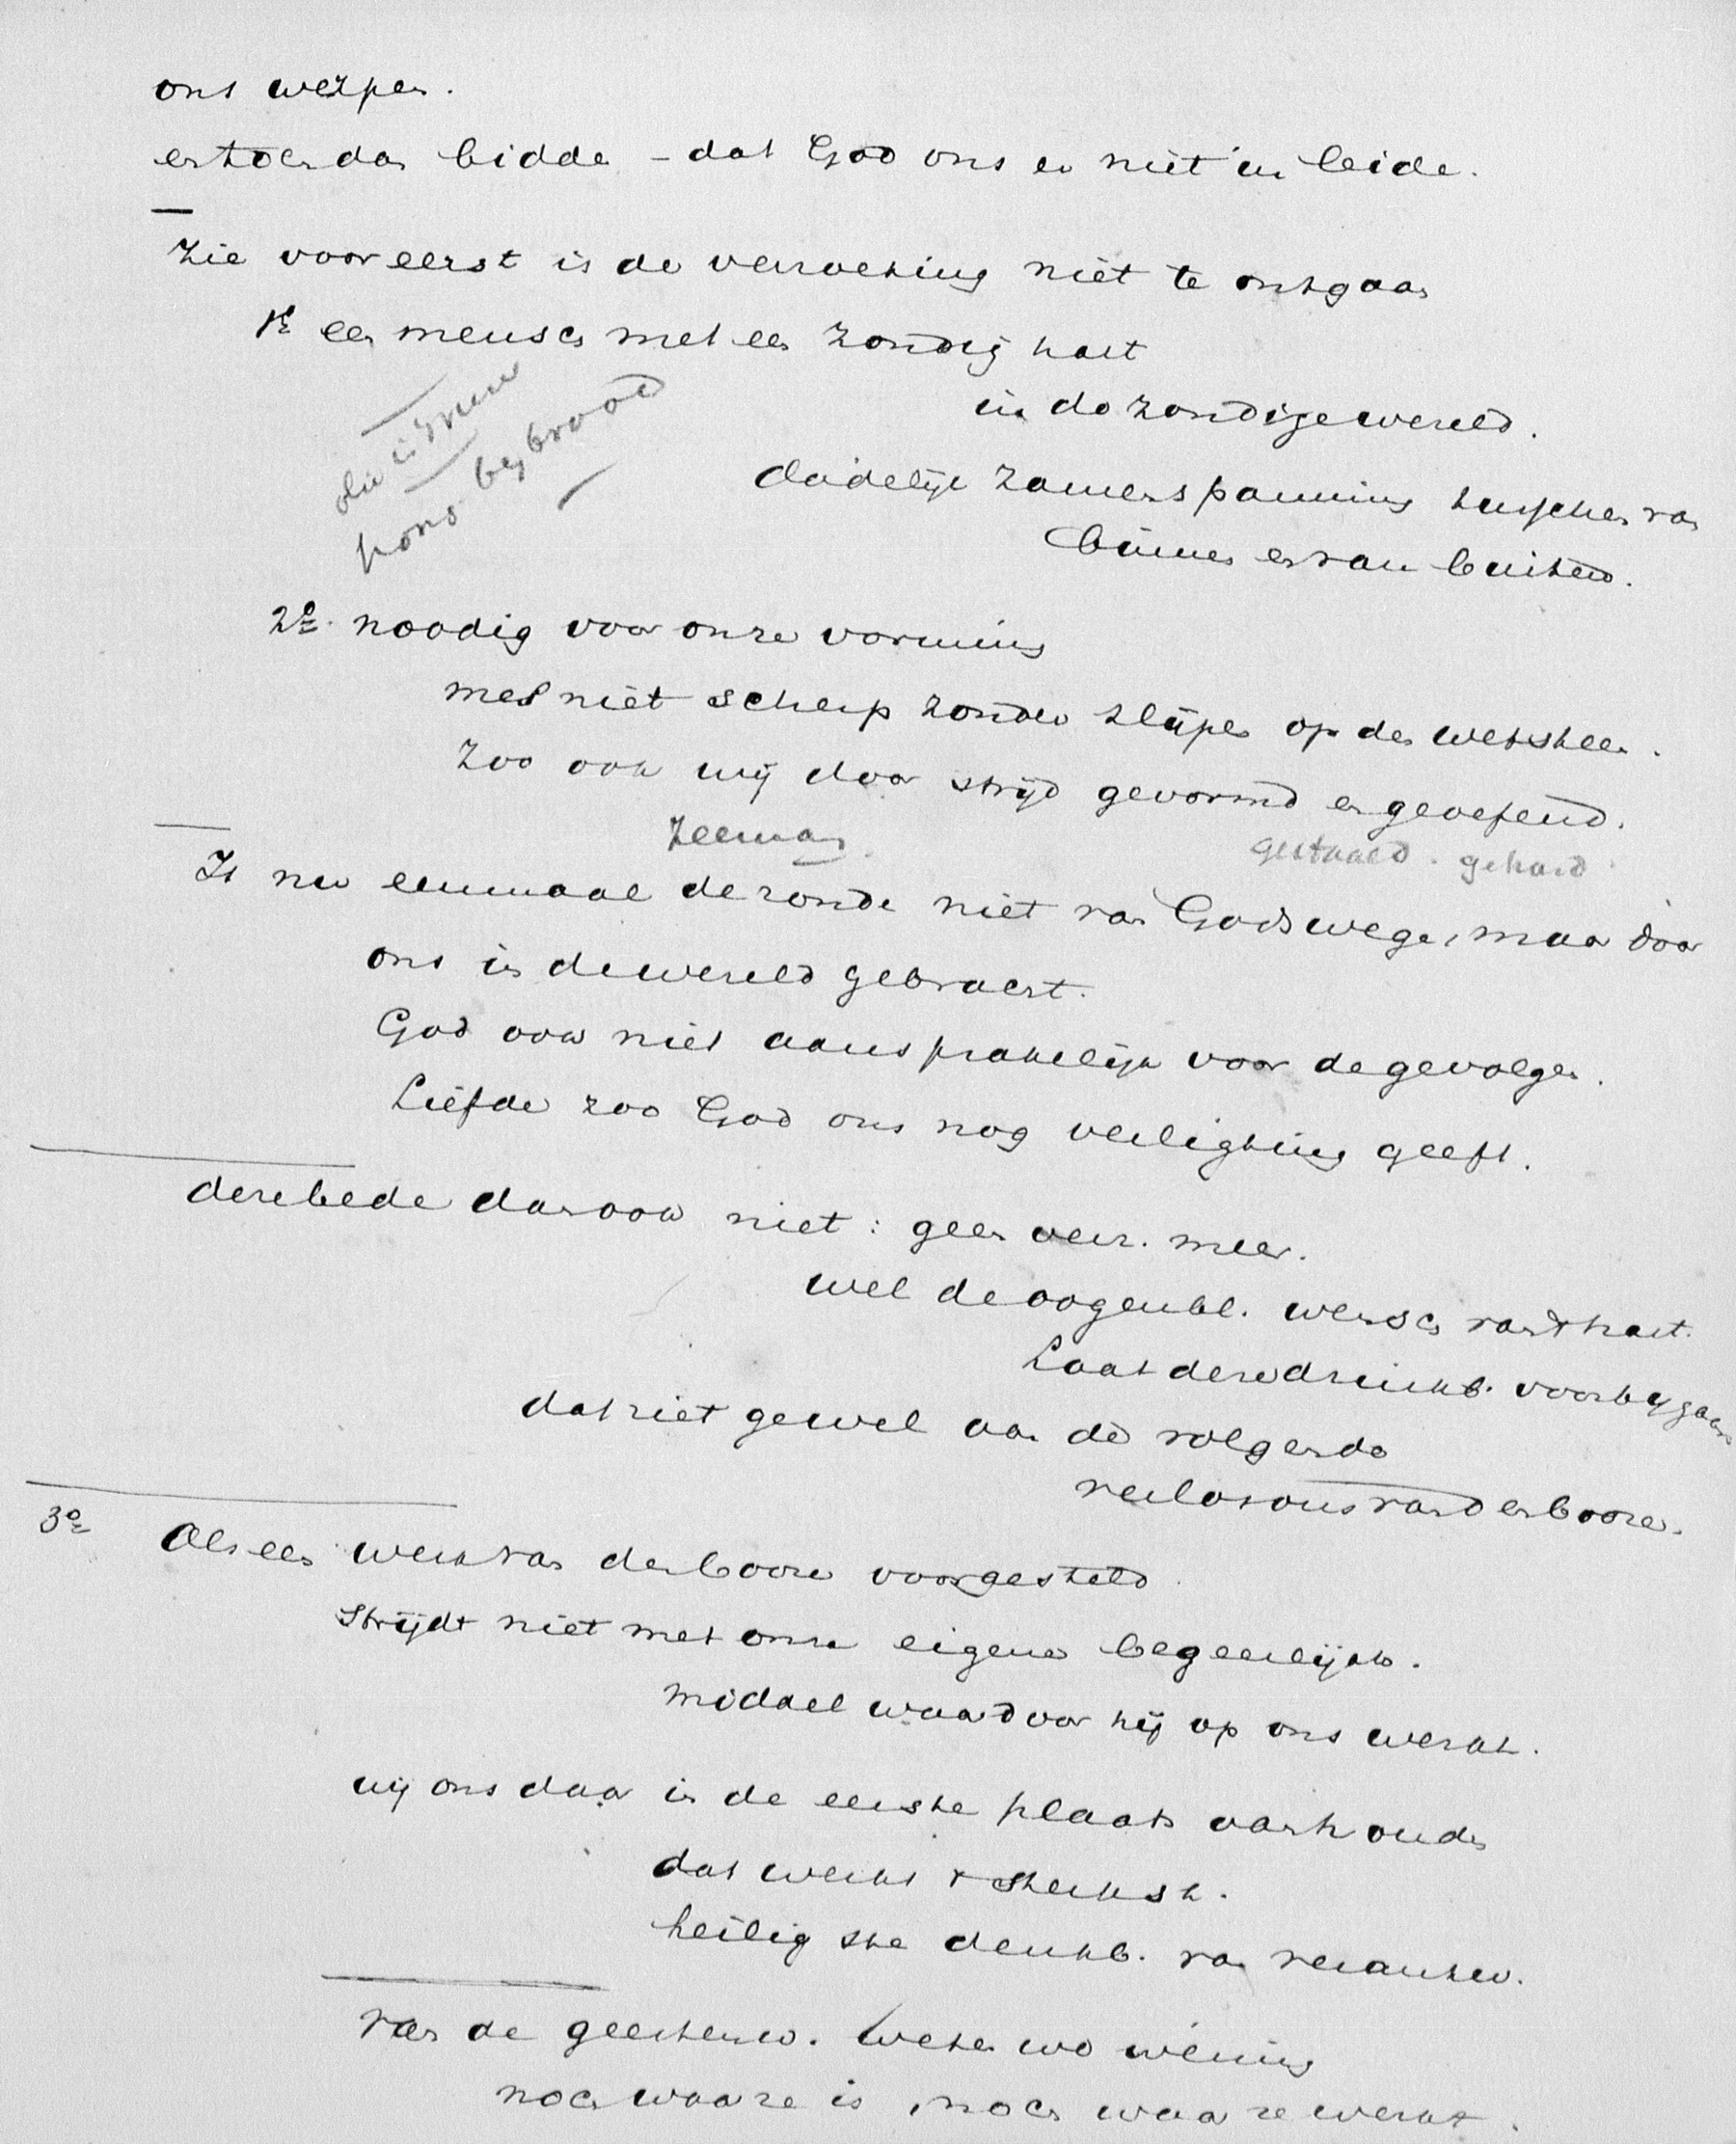 ons werpen.
en toch dan bidden – dat God ons er niet in leide.
Zie vooreerst is de verzoeking niet te ontgaan
1e een mensch met een zondig hart
in de zondige wereld.
olie in vuur
hond bij brood
dadelijk zamenspanning tusschen van
binnen en van buiten.
2e. noodig voor onze vorming
mes niet scherp zonder slijpen op den wetsteen.
Zoo ook wij door strijd gevormd en geoefend.
Zeeman
gestaald. gehard
Is nu eenmaal de zonde niet van Gods wege, maar door
ons in de wereld gebracht.
God ook niet aansprakelijk voor de gevolgen.
Liefde zoo God ons nog verligting geeft.
deze bede dan ook niet: geen verz. meer.
wel de oogenbl. wensch van 't hart.
Laat dezen drinkb. voorbijgaan
dat ziet ge wel aan de volgende
verlos ons van den booze.
3e Als een werk van den booze voorgesteld
strijdt niet met onze eigene begeerlijkh.
middel waardoor hij op ons werkt.
wij ons daar in de eerste plaats aan houden
dat werkt 't sterkst.
heilig ste denkb. van verantw.
van de geestenw. weten we weinig
noch waar ze is, noch waar ze werkt.